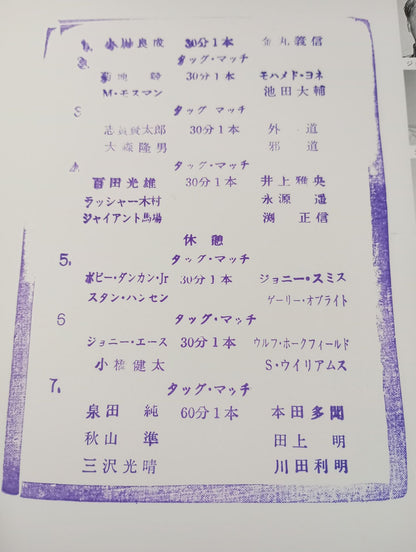 1. 小川良成 30分1本 金丸義信
2. タッグ・マッチ
菊地 毅 30分1本 モハメド・ヨネ
M・モスマン 池田大輔
3 タッグ マッチ
志賀賢太郎 30分1本 外道
大森隆男 邪道
4. タッグ・マッチ
百田光雄 30分1本 井上雅央
ラッシャー木村 永源遥
ジャイアント馬場 渕正信
休憩
5. タッグ・マッチ
ボビー・ダンカンJr 30分1本 ジョニー・スミス
スタン・ハンセン ゲーリー・オブライト
6 タッグ・マッチ
ジョニー・エース 30分1本 ウルフ・ホークフィールド
小橋健太 S・ウイリアムス
7. タッグ・マッチ
泉田純 60分1本 本田多聞
秋山準 田上明
三沢光晴 川田利明